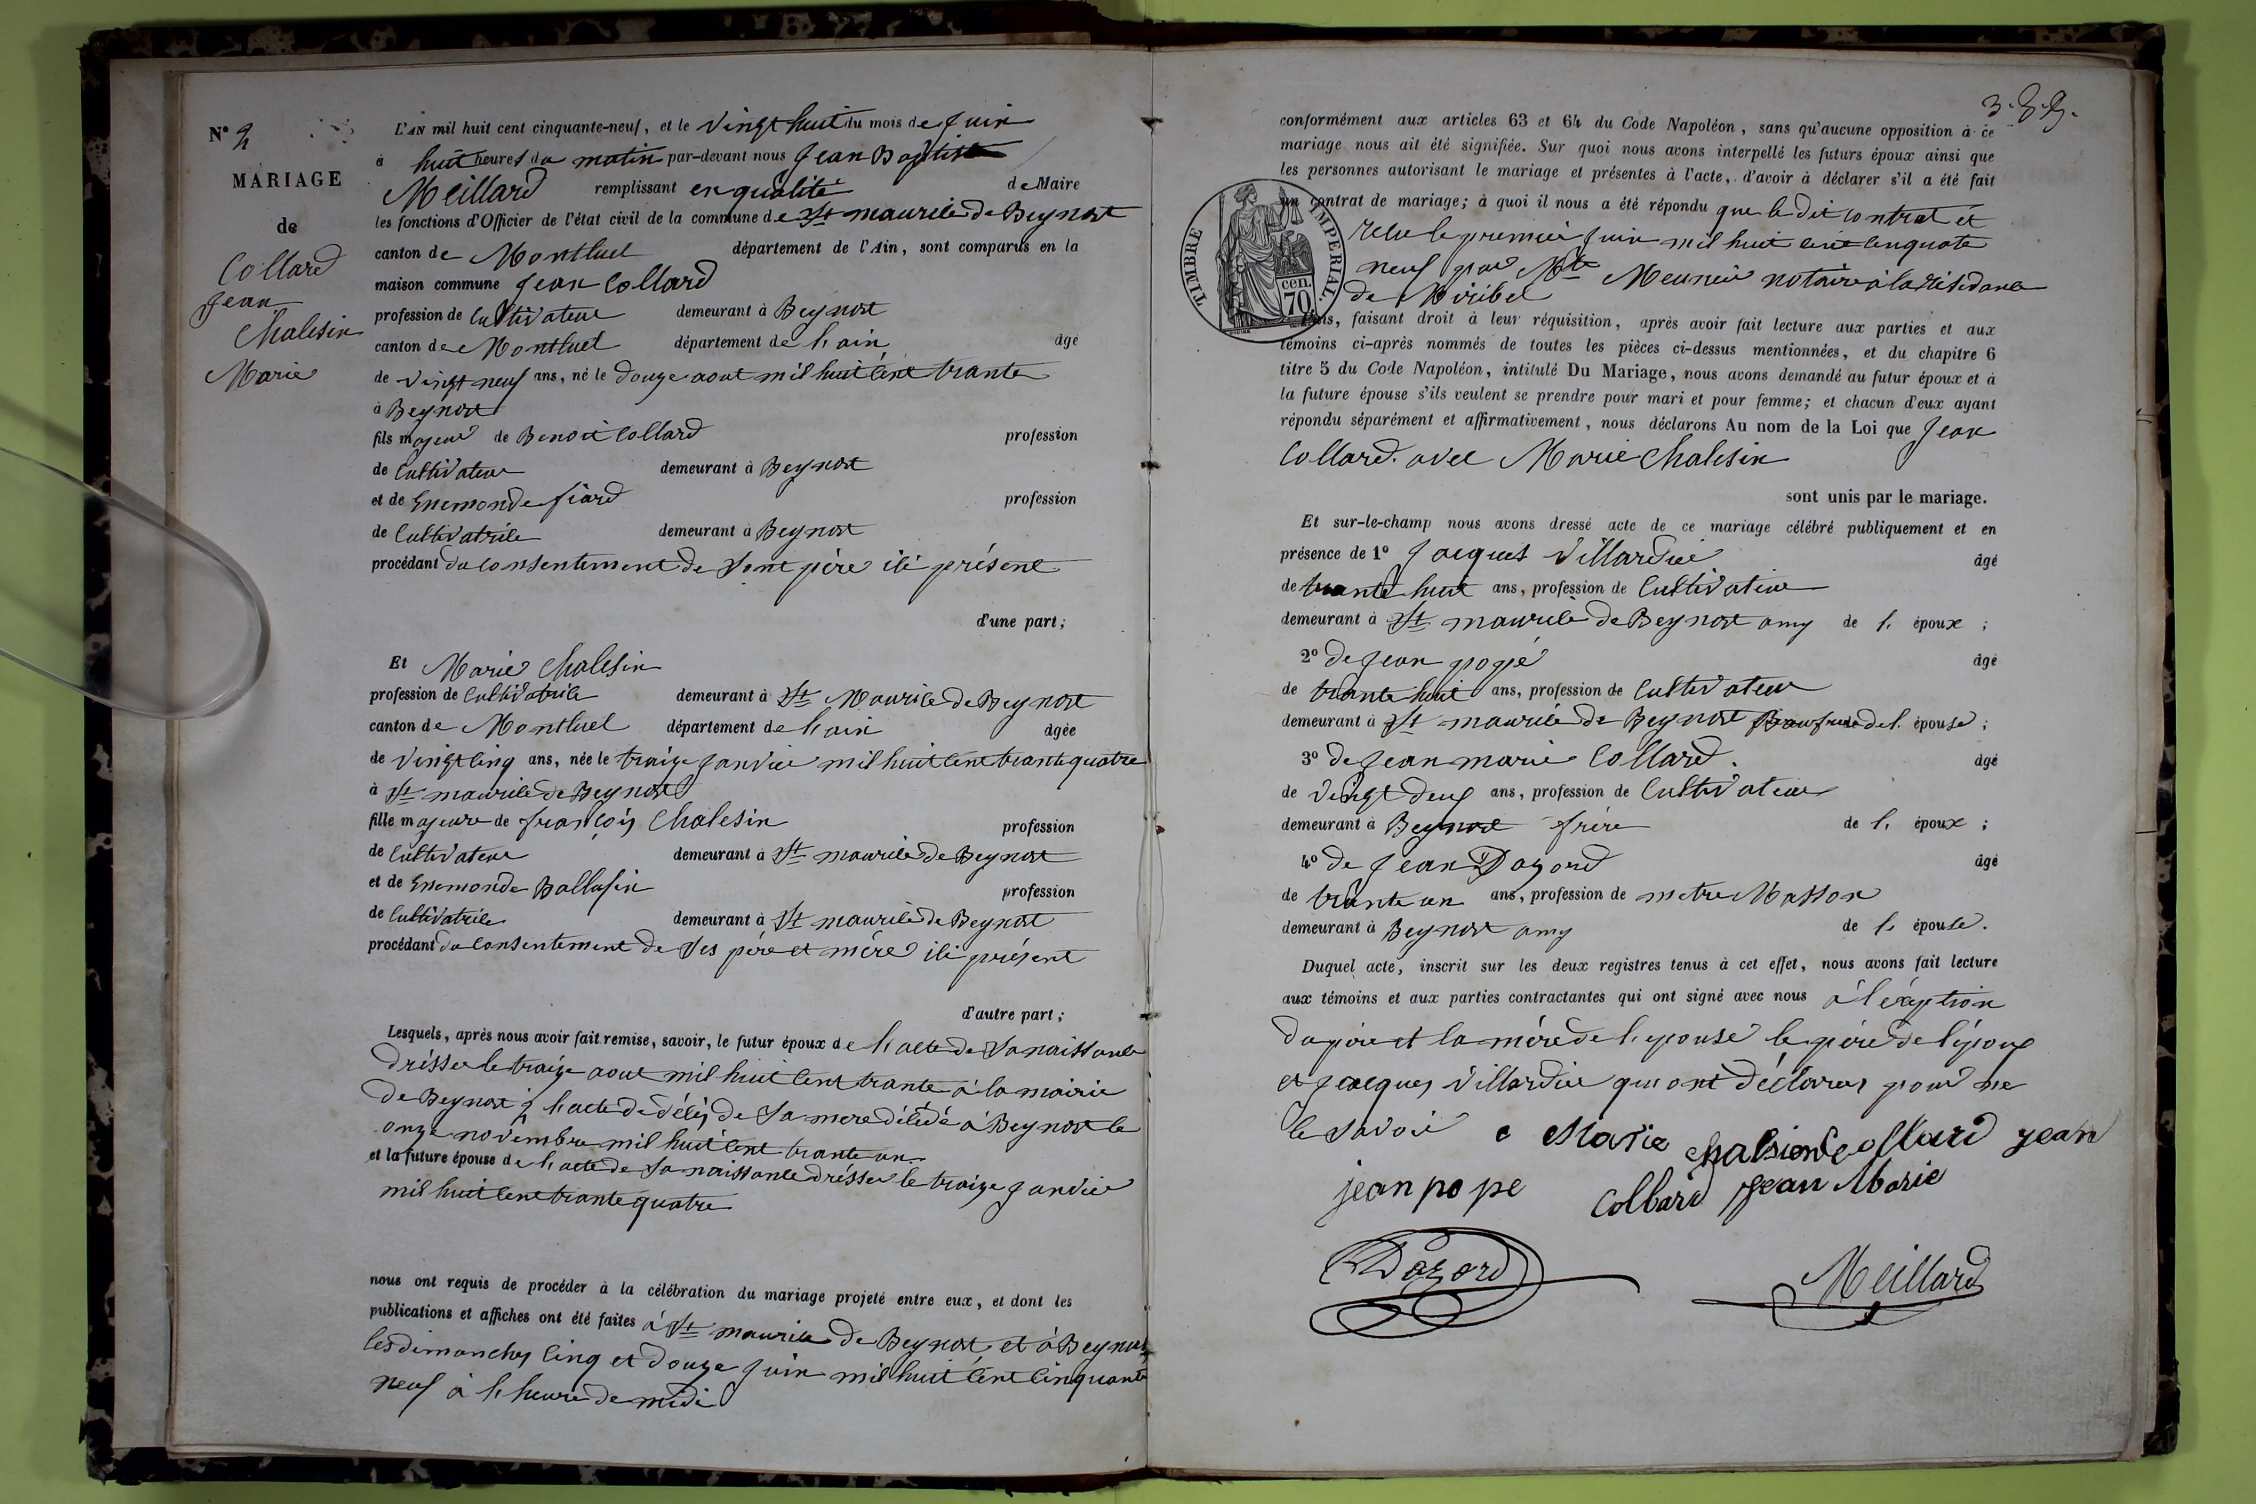 N° 2
MARIAGE
de
Collard
Jean
Chalesin
Marie
L'AN mil huit cent cinquante-neuf, et le vingt huit du mois de Juin
à huit heures du matin par-devant nous Jean Baptiste
Meillard remplissant en qualité de Maire
les fonctions d'Officier de l'état civil de la commune de St maurice de Beynost
canton de Montluel département de l'Ain, sont comparus en la
maison commune Jean Collard
profession de Cultivateur demeurant à Beynost
canton de Montluel département de l'ain âgé
de vingt neuf ans, né le douze aout mil huit cent trante
à Beynost
fils majeur de Benoit Collard profession
de Cultivateur demeurant à Beynost
et de Enemonde fiard profession
de Cultivatrice demeurant à Beynost
procédant du consentement de sont père ici présent
d'une part;
Et Marie Chalesin
profession de Cultivatrice demeurant à St Maurice de Beynost
canton de Montluel département de l'ain âgée
de vingt cinq ans, née le traize janvier mil huit cent trante quatre
à St maurice de Beynost
fille majeure de françois Chalesin profession
de Cultivateur demeurant à St maurice de Beynost
et de Enemonde Ballufin profession
de Cultivatrice demeurant à St maurice de Beynost
procédant du consentement de ses père et mère ici présent
d'autre part;
Lesquels, après nous avoir fait remise, savoir, le futur époux de l'acte de sa naissance
drésser le traize aout mil huit cent trante à la mairie
de Beynost 2 l'acte de décès de sa mere décédé à Beynost le
onze novembre mil huit cent trante un
et la future épouse de l'acte de sa naissance drésser le traize janvier
mil huit cent trante quatre
nous ont requis de procéder à la célébration du mariage projeté entre eux, et dont les
publications et affiches ont été faites à St maurice de Beynost et à Beynost
les dimanches cinq et douze juin mil huit cent cinquante
neuf à l'heure de midi
3. 8. 9.
conformément aux articles 63 et 64 du Code Napoléon, sans qu'aucune opposition à ce
mariage nous ait été signifiée. Sur quoi nous avons interpellé les futurs époux ainsi que
les personnes autorisant le mariage et présentes à l'acte, d'avoir à déclarer s'il a été fait
un contrat de mariage; à quoi il nous a été répondu que le dit contrat ét
recu le premier juin mil huit cent cinquate
neuf par Mte Meunier notaire à la résidance
de Miribel
TIMBRE IMPERIAL.
70 cen.
faisant droit à leur réquisition, après avoir fait lecture aux parties et aux
témoins ci-après nommés de toutes les pièces ci-dessus mentionnées, et du chapitre 6
titre 5 du Code Napoléon, intitulé Du Mariage, nous avons demandé au futur époux et à
la future épouse s'ils veulent se prendre pour mari et pour femme; et chacun d'eux ayant
répondu séparément et affirmativement, nous déclarons Au nom de la Loi que Jean
Collard avec Marie Chalesin
sont unis par le mariage.
Et sur-le-champ nous avons dressé acte de ce mariage célébré publiquement et en
présence de 1° Jacques Villardier âgé
de trante huit ans, profession de Cultivateur
demeurant à St maurice de Beynost amy de l' époux ;
2° de Jean popé âgé
de trante huit ans, profession de Cultivateur
demeurant à St maurice de Beynost Beaufrere de l' épouse ;
3° de Jean marie Collard. âgé
de vingt deux ans, profession de Cultivateur
demeurant à Beynost frère de l' époux ;
4° de Jean Dozord âgé
de trante un ans, profession de metre Masson
demeurant à Beynost amy de l' épouse.
Duquel acte, inscrit sur les deux registres tenus à cet effet, nous avons fait lecture
aux témoins et aux parties contractantes qui ont signé avec nous à l'éxeption
du père et la mère de l'epouse le père de l'époux
et Jacques Villardier qui ont déclarer pour ne
le savoir Marie chalsien Collard jean
jean po pe Collard Jean Marie
Dozord Meillard